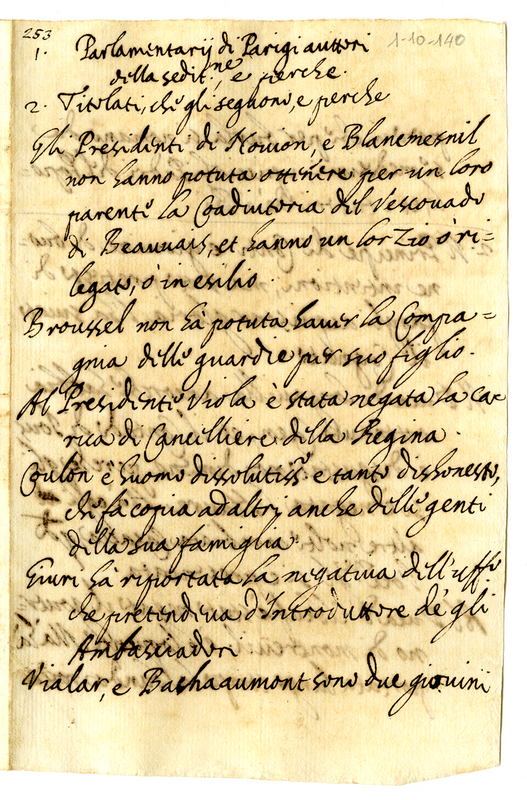 253
1-10-140
1. Parlamentarij di Parigi auttori
della sedit.ne, e perche.
2. Titolati, che gli seguono, e perche
Gli Presidenti di Novion, e Blanemesnil
non hanno potuta ottenere per un loro
parente la Coadiutoria del Vescovado
di Beauvais, et hanno un lor Zio ò ri-
legato, ò in esilio.
Broussel non hà potuta haver la Compa=
gnia delle guardie per suo figlio.
Al Presidente Viola è stata negata la ca
rica di Cancilliere della Regina.
Coulon è huomo dissolutiss.o e tanto dishonesto,
che fà copia ad altri anche delle genti
della sua famiglia.
hà riportata la negativa dell'uffi
che pretendeva d'Introduttore de gli
Ambasciadori
Vialar, e Bashaaumont sono due giovini